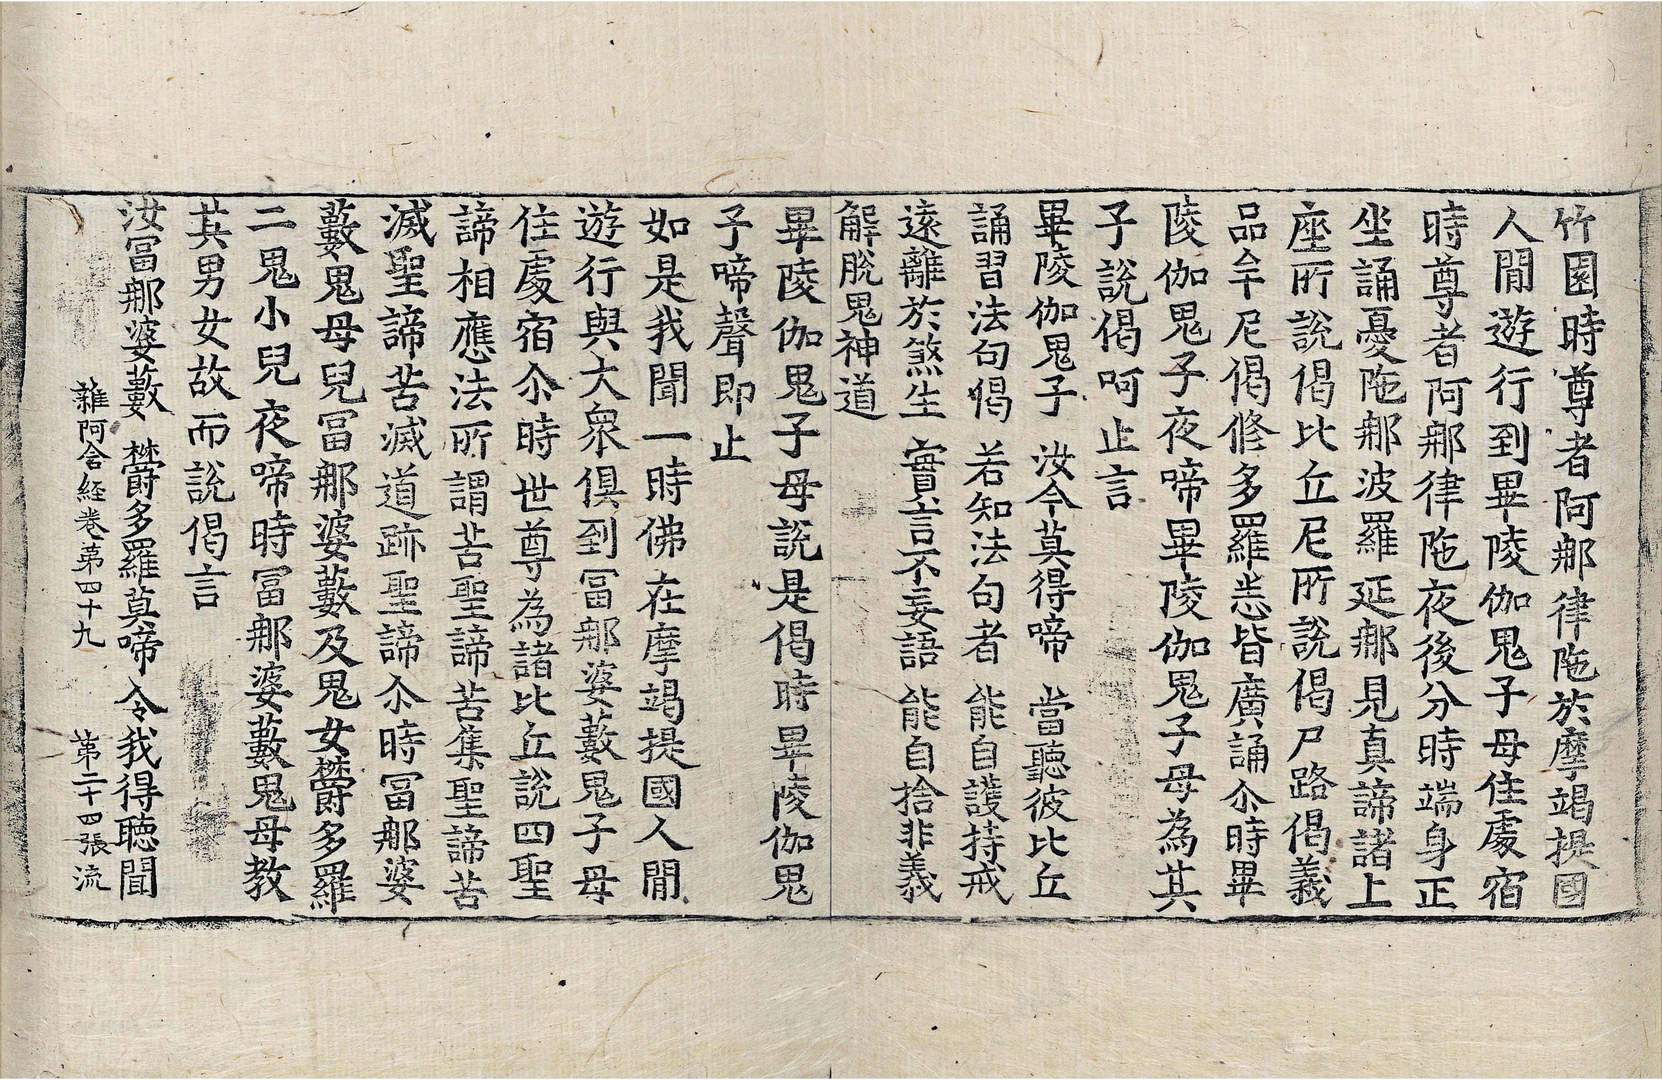 竹園時尊者阿那律陁於摩竭提國
人閒遊行到畢陵伽鬼子母住處宿
時尊者阿那律陁夜後分時端身正
坐誦憂陁那波羅延那見真諦諸上
座所說偈比丘尼所說偈尸路偈義
品牟尼偈修多羅悉皆廣誦尒時畢
陵伽鬼子夜啼畢陵伽鬼子母為其
子說偈呵止言
畢陵伽鬼子 汝今莫得啼 當聽彼比丘
誦習法句偈 若知法句者 能自護持戒
遠離於煞生 實言不妄語 能自捨非義
解脫鬼神道
畢陵伽鬼子母說是偈時畢陵伽鬼
子啼聲即止
如是我聞一時佛在摩竭提國人閒
遊行與大衆俱到冨那婆藪鬼子母
住處宿尒時世尊為諸比丘說四聖
諦相應法所謂苦聖諦苦集聖諦苦
滅聖諦苦滅道跡聖諦尒時冨那婆
藪鬼母兒冨那婆藪及鬼女欝多羅
二鬼小兒夜啼時冨那婆藪鬼母教
其男女故而說偈言
汝冨那婆藪 欝多羅莫啼 令我得聽聞
雜阿含經卷第四十九 第二十四張 流